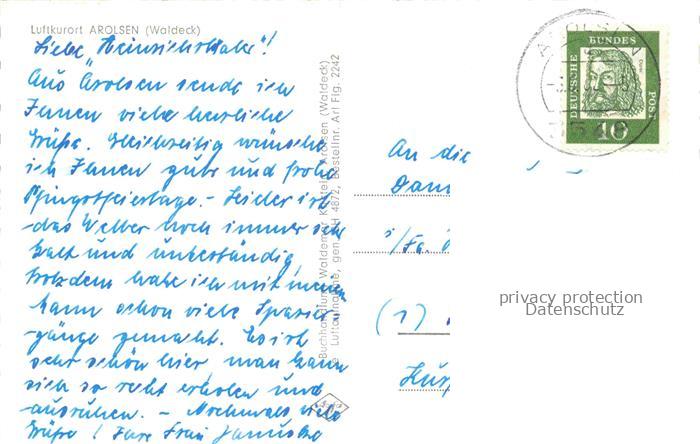 Luftkurort AROLSEN (Waldeck)
Liebe "Heinrichs
Aus Arolsen sende ich
Ihnen viele herzliche
Grüße. Gleichzeitig wünsche
ich Ihnen gute und frohe
Pfingstfeiertage. - Leider ist
das Wetter noch immer sehr
kalt und unbeständig,
trotzdem habe ich mit meinem
Mann schon viele Spazier-
gänge gemacht. Es ist
sehr schön hier, man kann
sich so recht erholen und
ausruhen. - Nochmals viele
Grüße! Ihre Frau
Buchhandlung Waldemar Arolsen (Waldeck)
4872, Bestellnr. Arl Fig. 2242
An die
i/Fa.
(1)
DEUTSCHE BUNDES POST
10
AROLSEN
privacy protection
Datenschutz